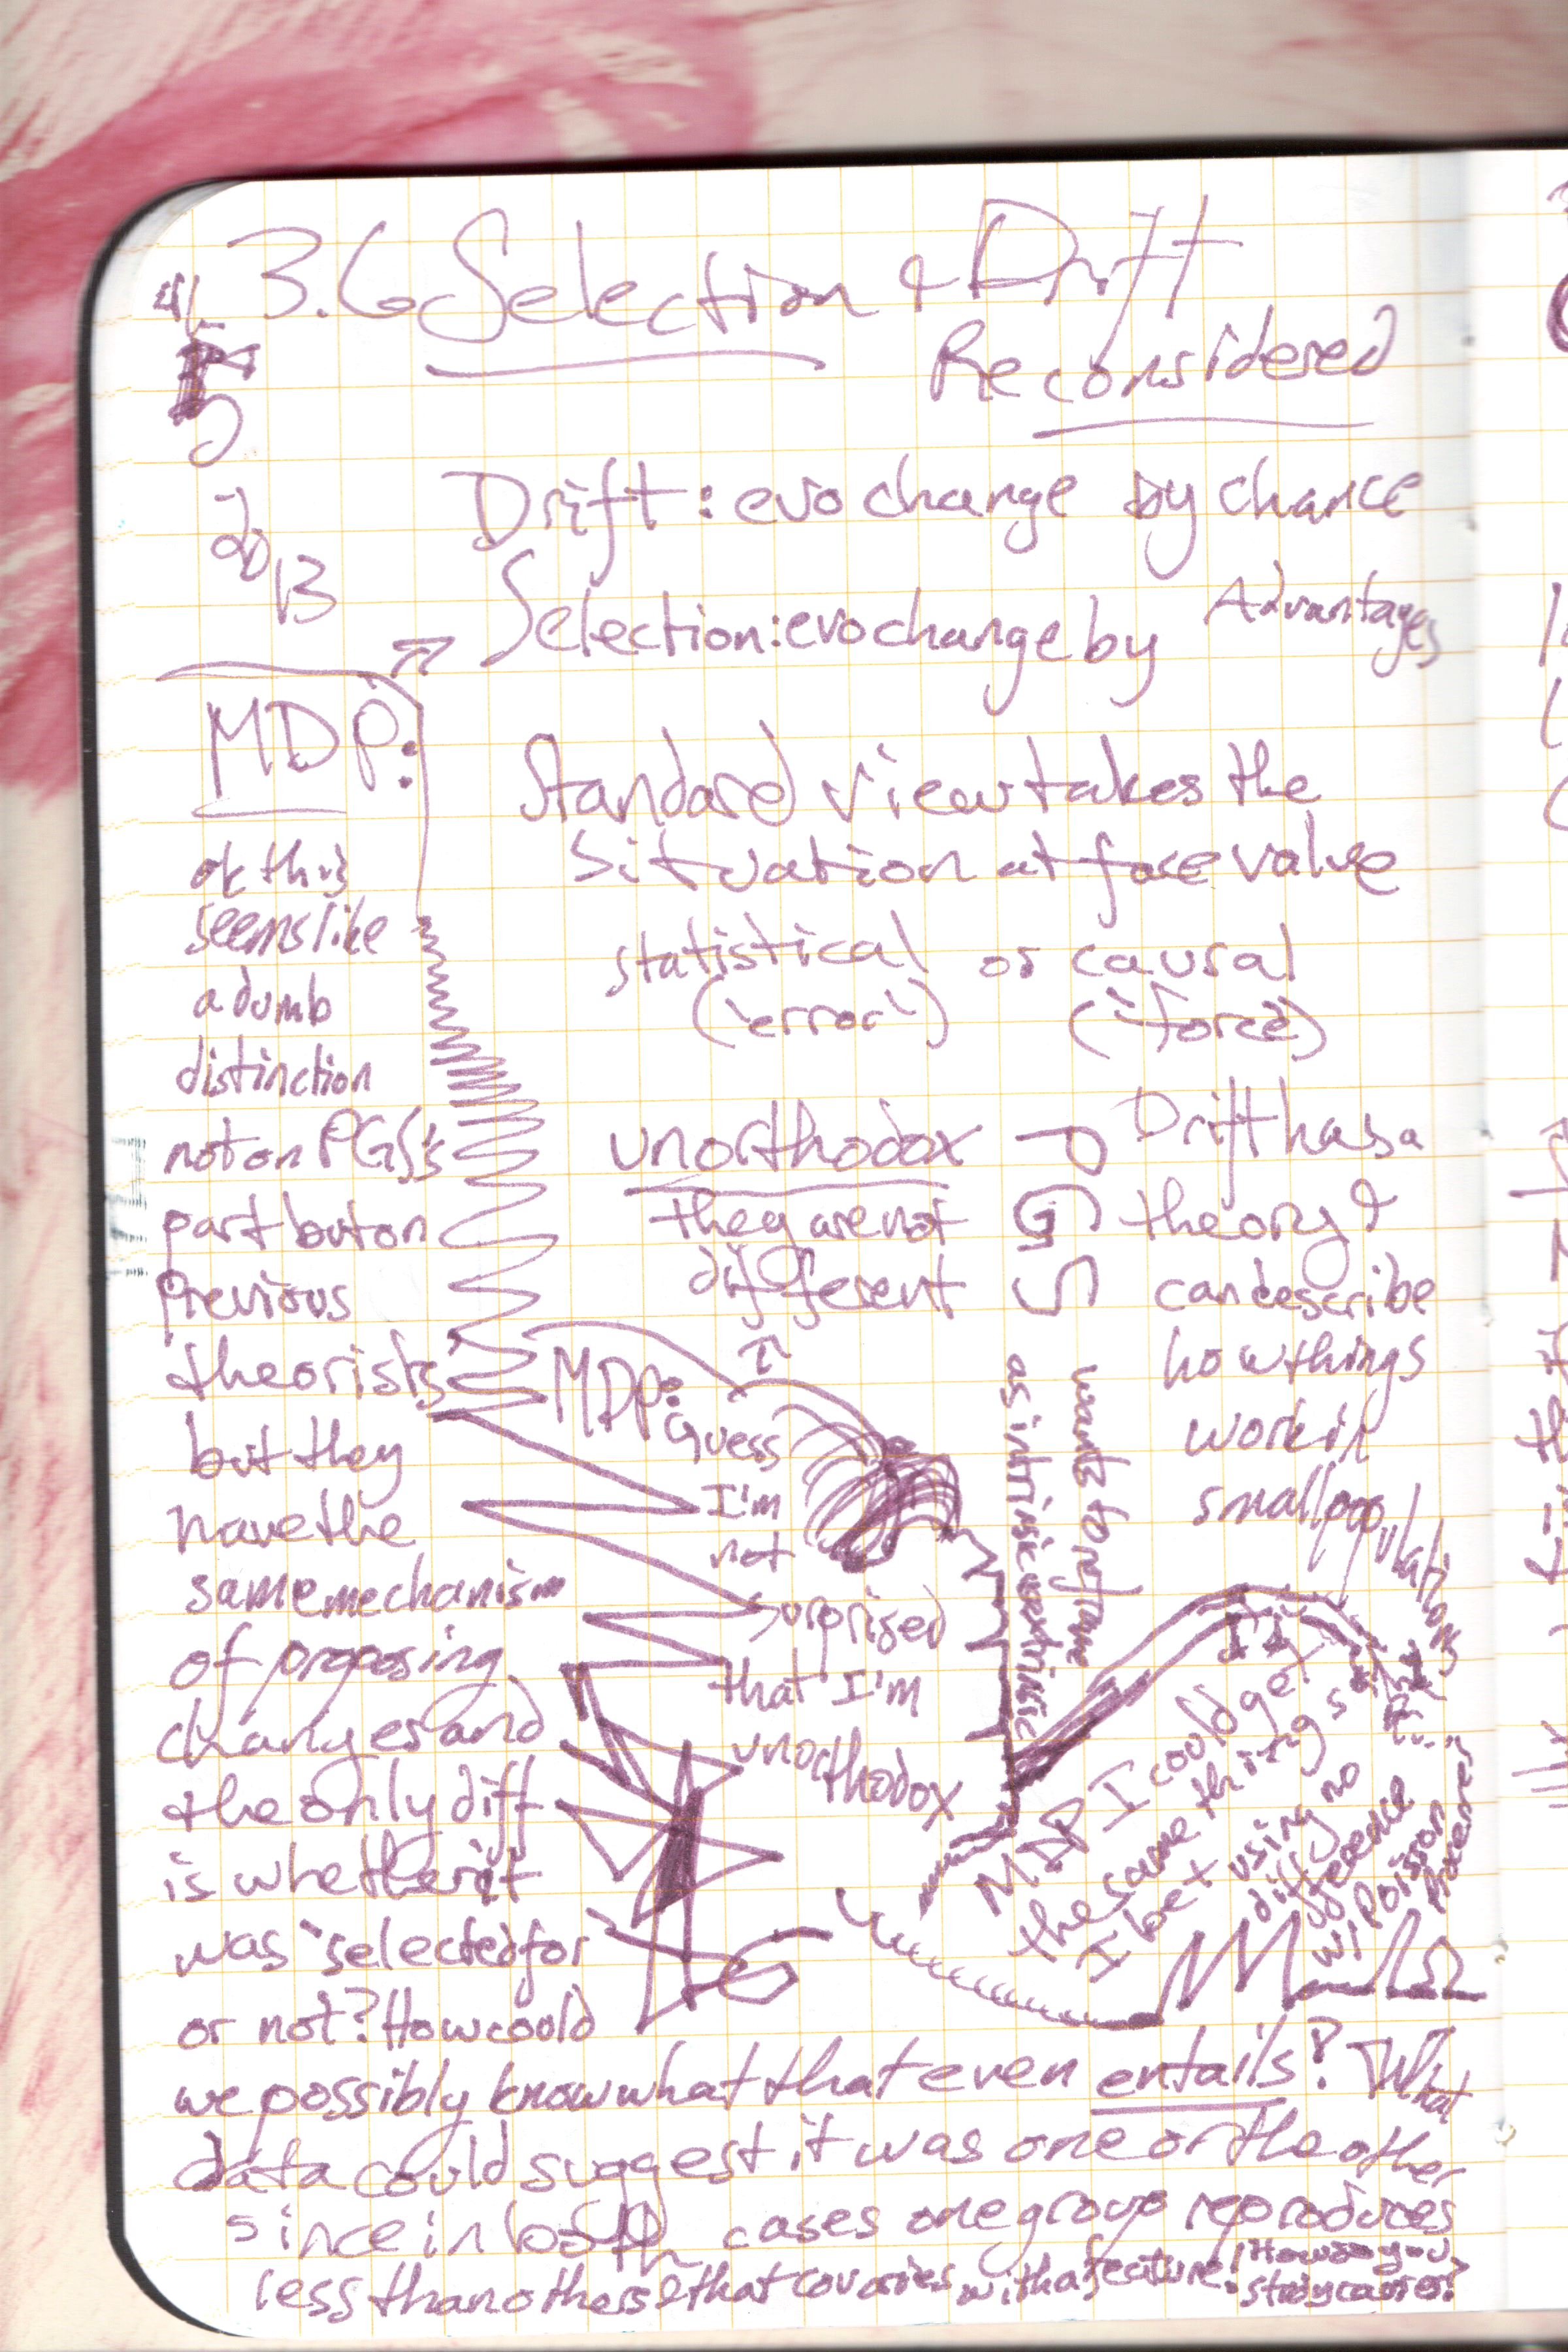 3.6 Selection & Drift
Reconsidered
2013
Drift: evo change by chance
Selection: evo change by Advantages
MDP:
ok this
seems like
a dumb
distinction
not on PGS's
part but on
previous
theorists'
but they
have the
same mechanism
of proposing
changes and
the only diff
is whether it
was "selected for"
or not? How could
we possibly know what that even entails? What
data could suggest it was one or the other
since in both cases one group reproduces
less than others & that covaries with a feature!
Standard view takes the
situation at face value
statistical or causal
('error') ('force')
unorthodox
they are not
different
PGS
Drift has a
theory &
can describe
how things
work in
small populations
wants to reframe
as intrinsic vs extrinsic
MDP:
I
Guess
I'm
not
surprised
that I'm
unorthodox
MDP I could get
the same things
I bet using no
difference
w/ Poisson
Processes